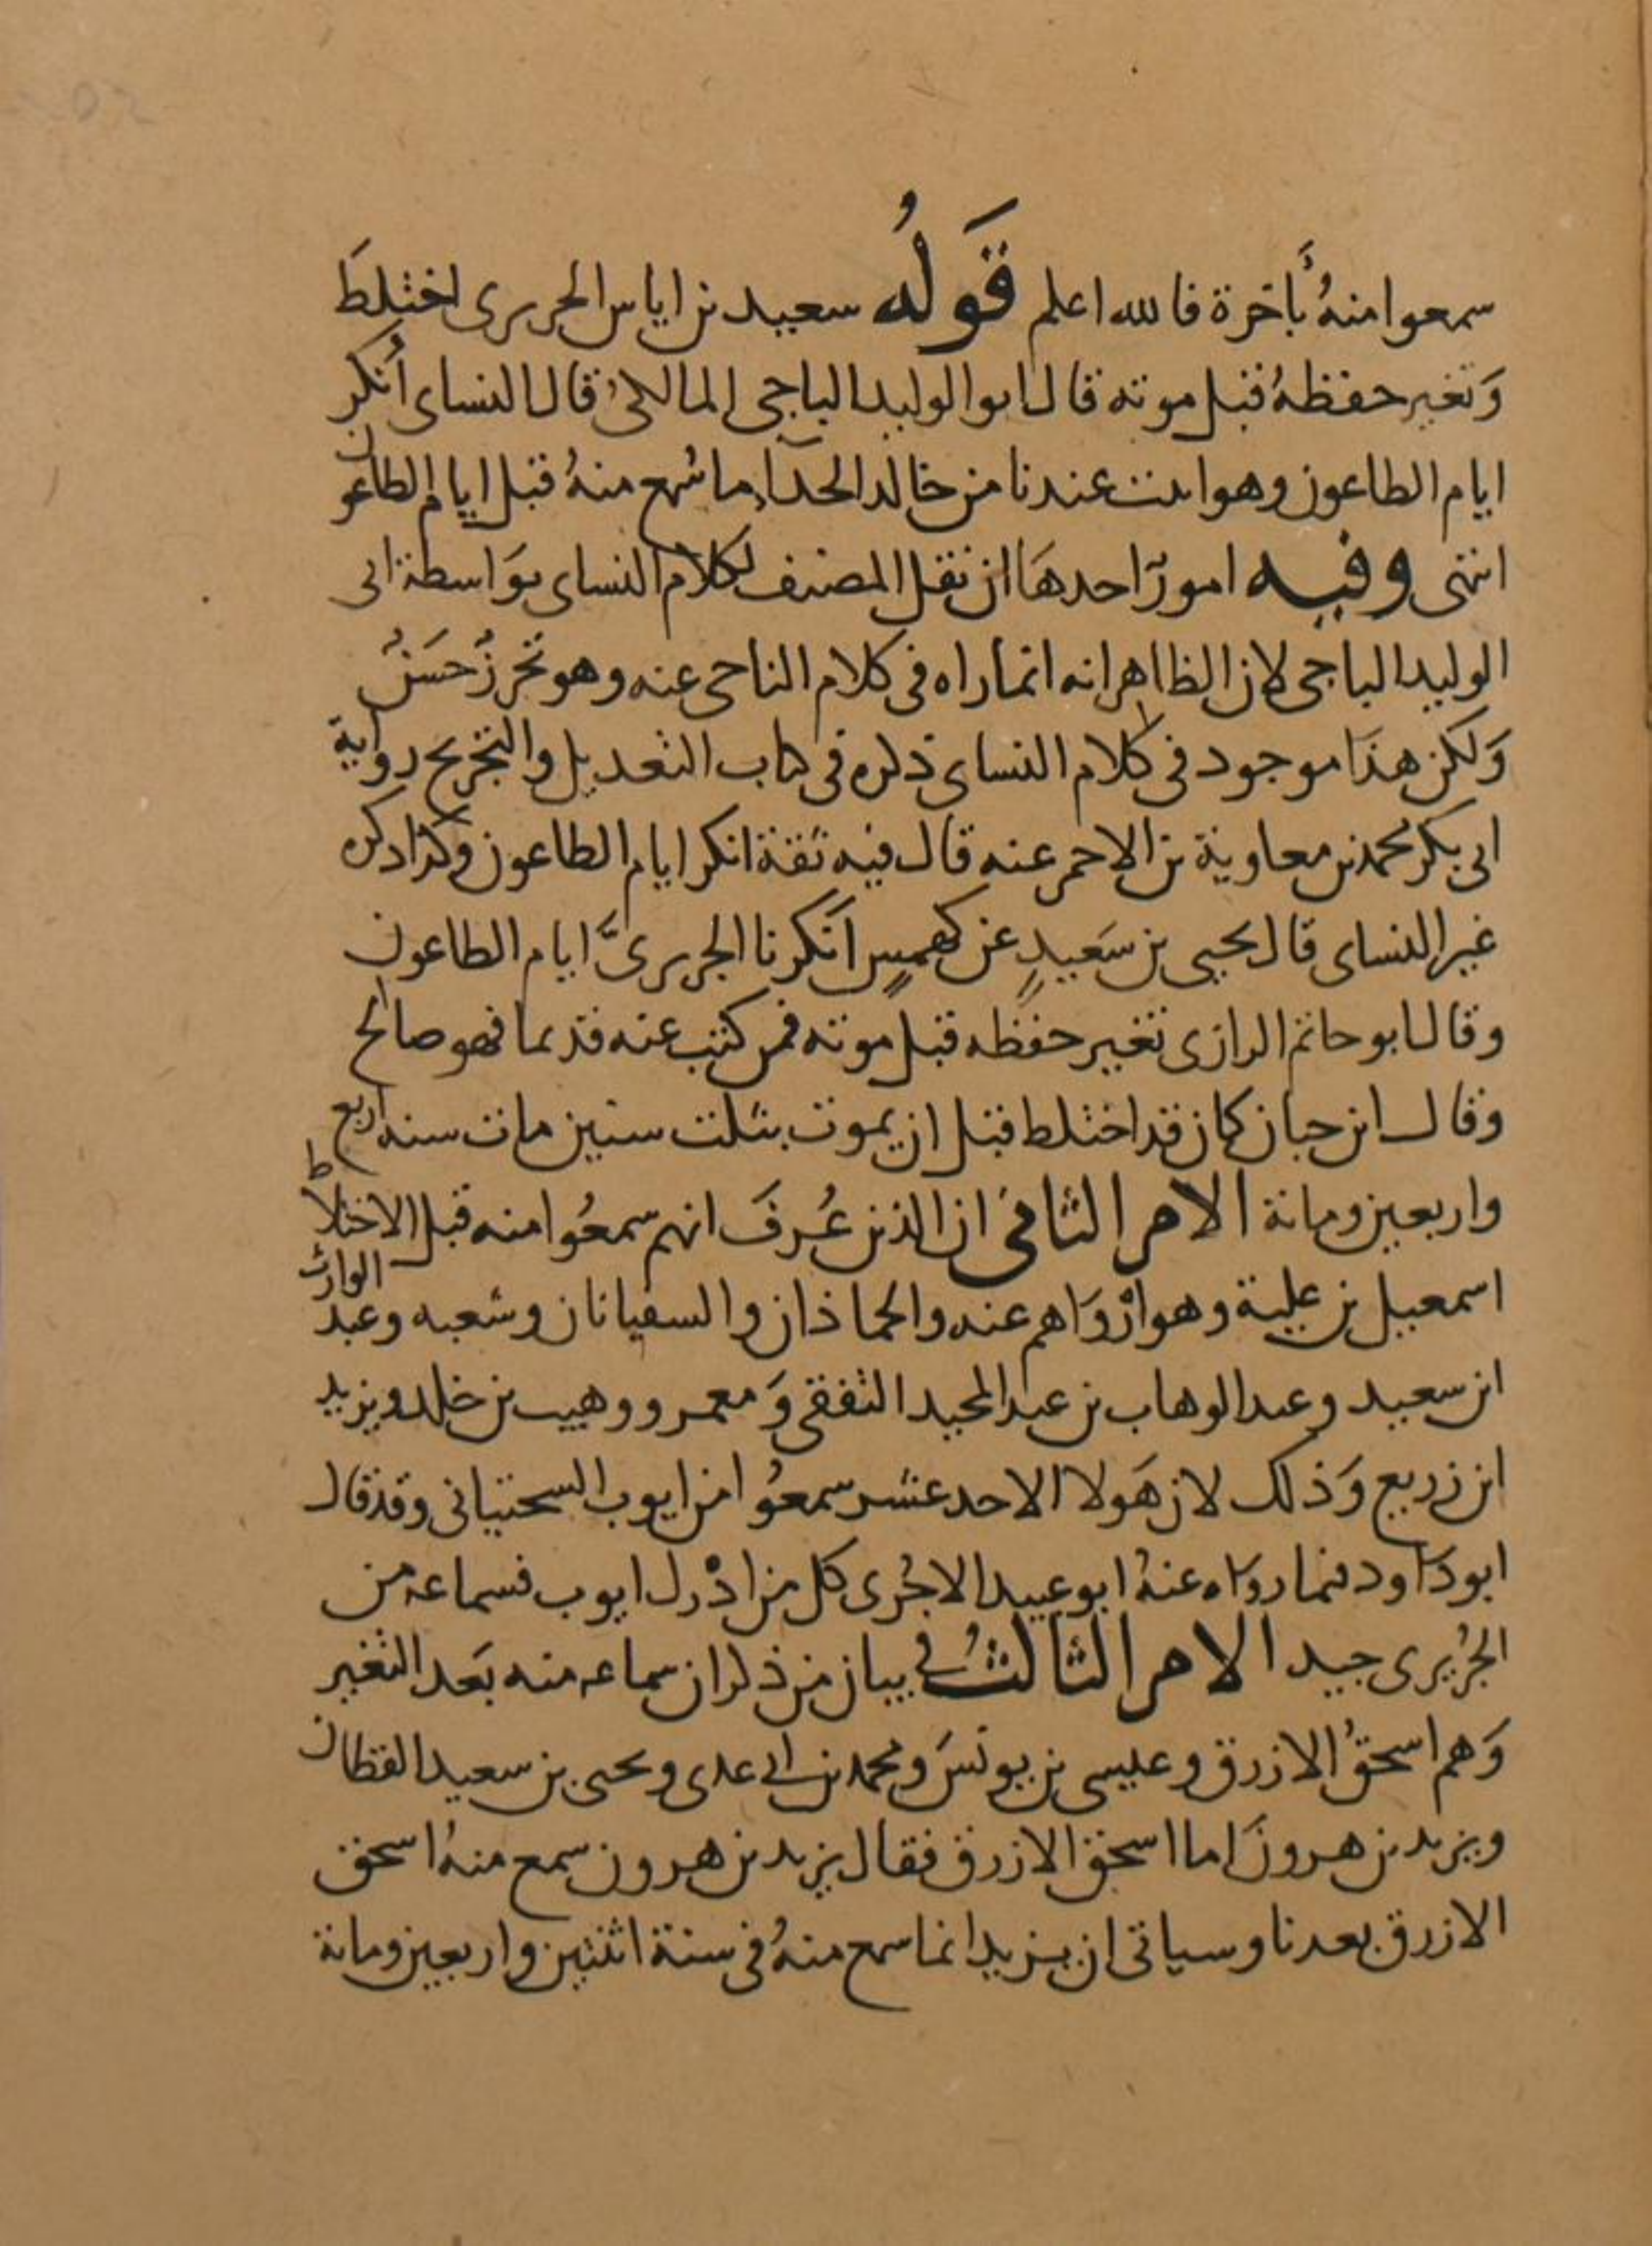 سمعوا منهُ بأَخرة فالله اعلم قَولُه سعيد بن اياس الجريرى اختلطَ
وَتغير حفظهُ قبل موته قال ابو الوليد الباجى المالكىُ قال النساى أنكر
ايام الطاعون وهو اثبت عندنا من خالد الحذآ ما سُمع منهُ قبل ايام الطاعون
انتهى وفيه امورٌ احدهَا ان نقل المصنف لكلام النساى بوَاسطة ابى
الوليد الباجى لان الظاهر انه انما راه فى كلام الباجى عنه وهو تحرزُ حَسَنُ
وَلكن هذَا موجود فى كلام النساى ذكره فى كتاب التعديل والتجريح رواية
ابى بكر محمد بن معاوية بن الاحمر عنه قال فيه ثقة انكر ايام الطاعون وكذا ذكره
غير النساى قال يحيى بن سَعيدٍ عن كهمسٍ اَنكرنا الجريرىَّ ايام الطاعون
وقال ابو حاتم الرازى تغير حفظه قبل موته فمن كتب عنه قديما فهو صالح
وقال ابن حبان كان قد اختلط قبل ان يموت بثلث سنين مات سنه اربع
واربعين ومائة الامر الثانى ان الذين عُرفَ انهم سمعُوا منه قبل الاختلاط
اسمعيل بن علية وهو ارْوَاهم عنه والحماذان والسفيانان وشعبه وعبد الوارث
ابن سعيد وعبد الوهاب بن عبد المجيد الثقفى وَ معمر ووهيب بن خلد ويزيد
ابن زريع وَذلك لان هَولا الاحد عشر سمعوُا من ايوب السختيانى وقد قال
ابو دَاود فيما روَاه عنهُ ابو عبيد الاجُرى كل من ادْرك ايوب فسماعه من
الجُريرى جيد الامر الثالثُ فى بيان من ذكر ان سماعه منه بَعد التغير
وَهم اسحقُ الازرق وعيسى بن يونسَ ومحمد بن ابى عدى ويحيى بن سعيد القطان
ويزيد بن هرونَ اما اسحق الازرق فقال يزيد بن هرون سمع منهُ اسحق
الازرق بعدنا وسياتى ان يزيد انما سمع منهُ فى سنة اثنتين واربعين ومائة